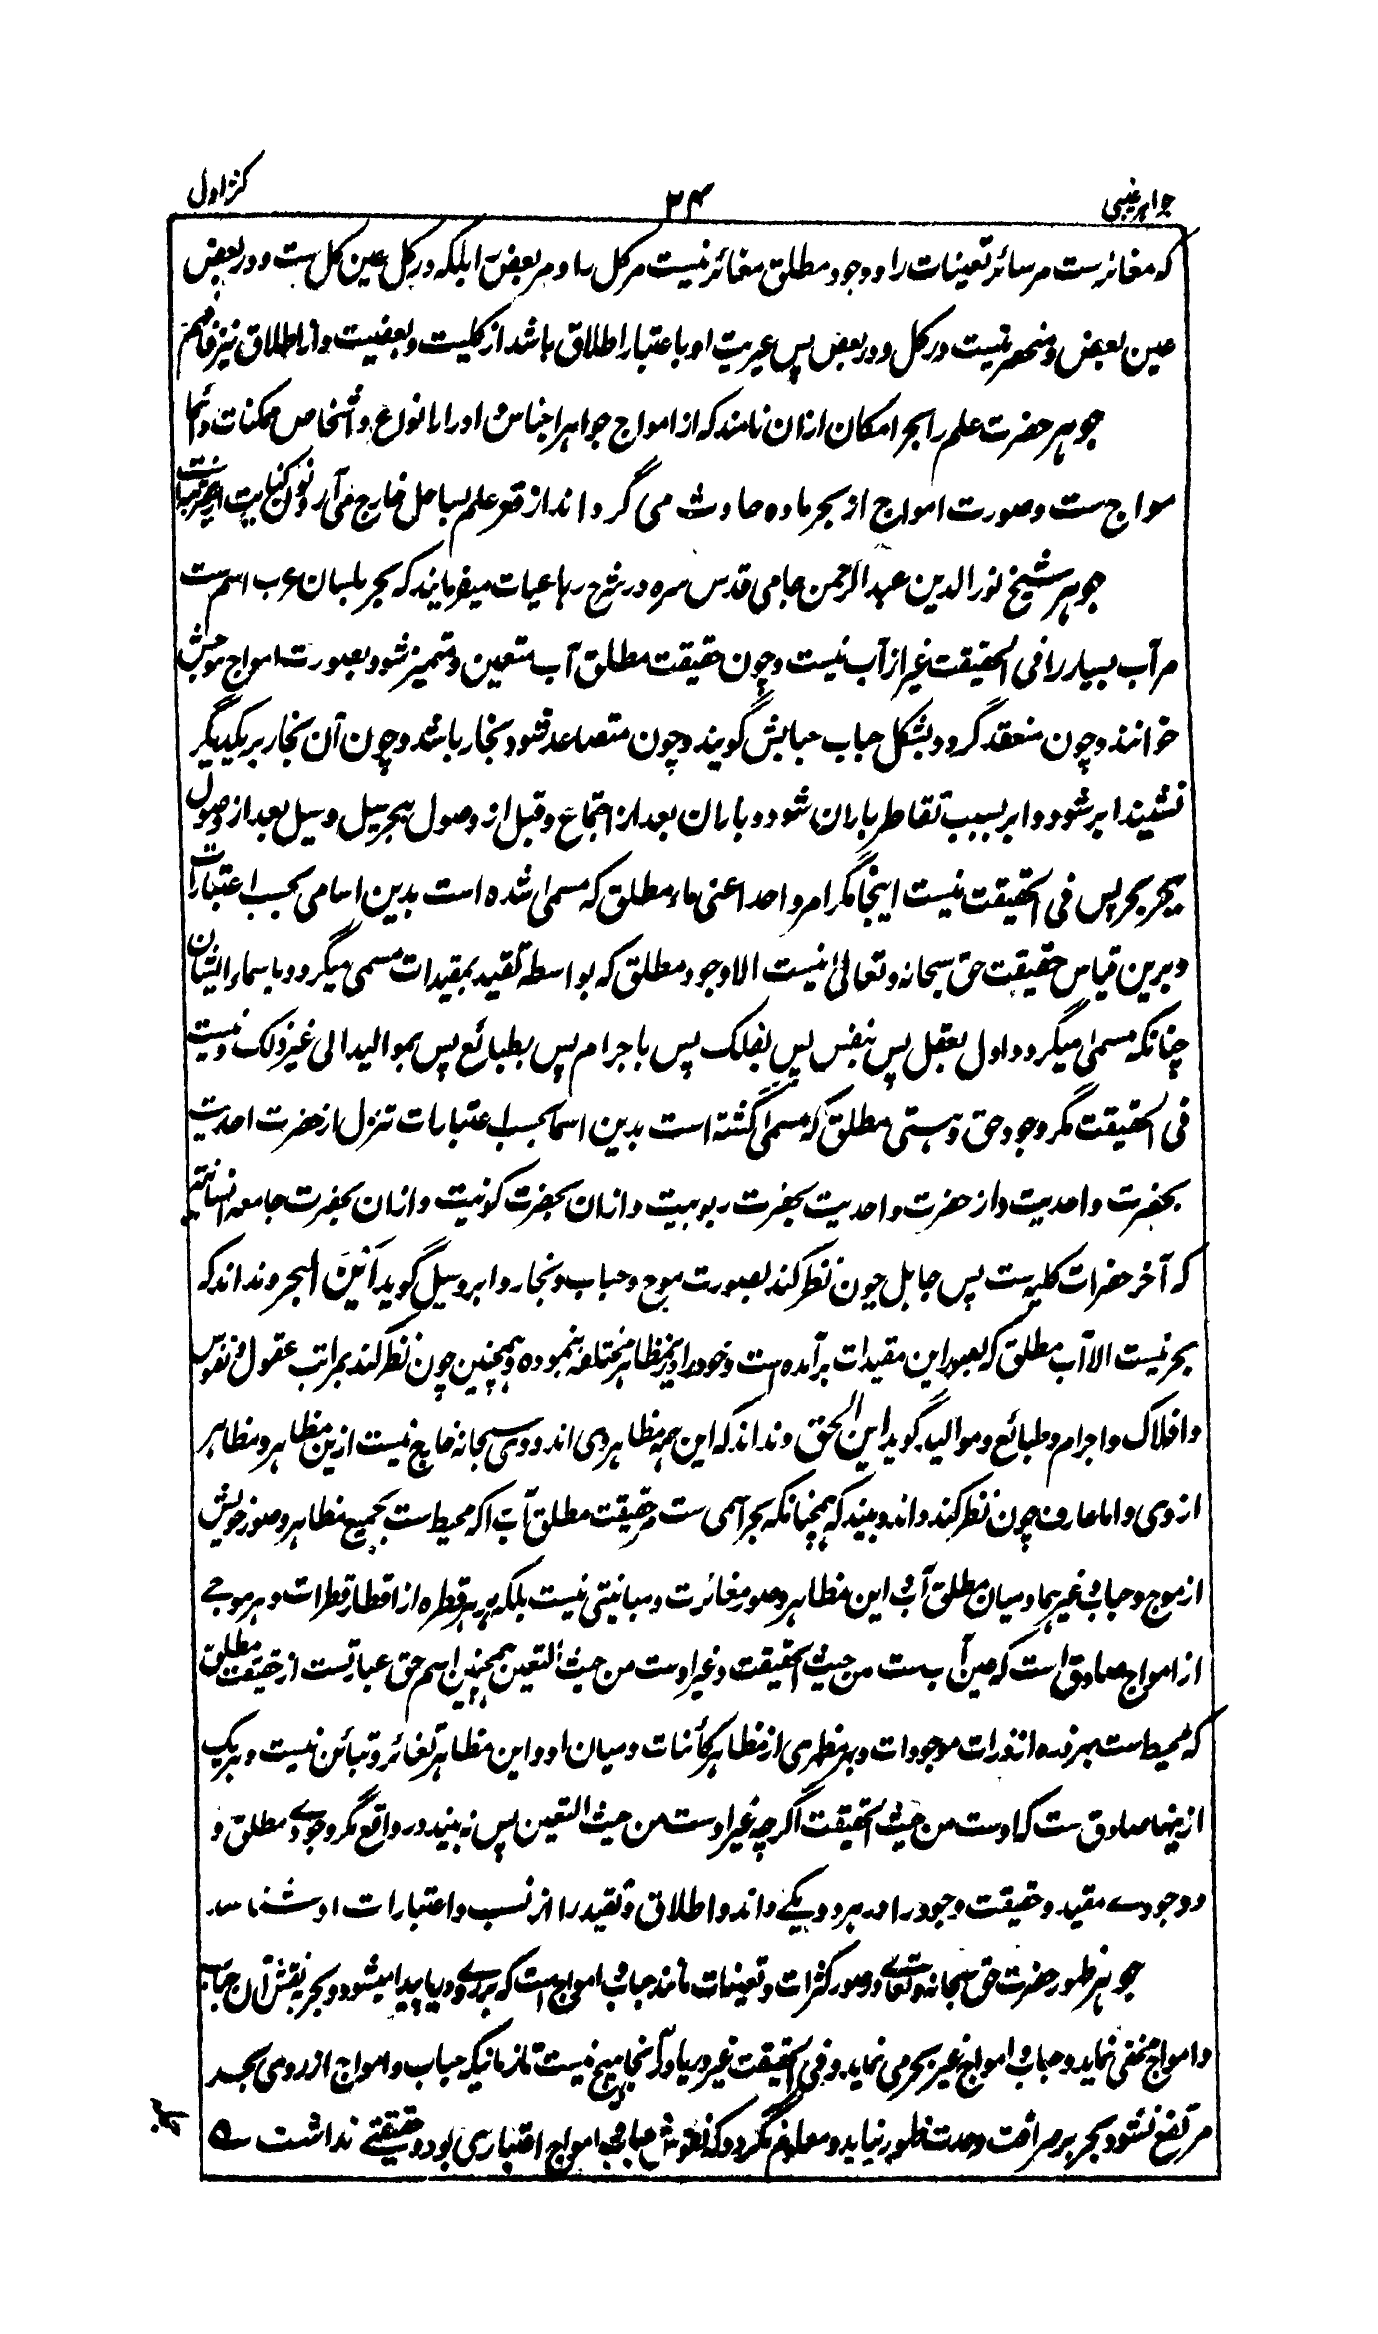 جواهر غیبی
۲۴
کنز اول
که مغائرست مر سائر تعینات را و وجود مطلق مغائر نیست مر کل را و مر بعض را بلکه در کل عین کل ست و در بعض
عین بعض و منحصر نیست در کل و در بعض پس غیریت او باعتبار اطلاق باشد از کلیت و بعضیت و از اطلاق نیز فافهم
جوهر حضرت علم را بحر امکان ازان نامند که از امواج جواهر اجناس او را با انواع و اشخاص ممکنات دائما
مواج ست و صورت امواج از بحر ماده حادث می گرداند از قعر علم بساحل خارج می آرد و نون کنایت
جوهر شیخ نور الدین عبد الرحمن جامی قدس سره در شرح رباعیات میفرمایند که بحر بلسان عرب اسم ست
مر آب بسیار را فی الحقیقت غیر از آب نیست و چون حقیقت مطلق آب متعین و متمیز شود بصورت امواج موجش
خوانند و چون منعقد گردد بشکل حباب حبابش گویند و چون متصاعد شود بخار باشد و چون آن بخار بر یکدیگر
نشیند ابر شود و ابر بسبب تقاطر باران شود و باران بعد از اجتماع و قبل از وصول ببحر سیل و سیل بعد از وصول
ببحر بحر پس فی الحقیقت نیست اینجا مگر امر واحد اعنی ماء مطلق که مسمی شده است بدین اسامی بحسب اعتبارات
و برین قیاس حقیقت حق سبحانه و تعالی نیست الا وجود مطلق که بواسطه تقید بمقیدات مسمی میگردد باسماء ایشان
چنانکه مسمی میگردد اول بعقل پس بنفس پس بفلک پس باجرام پس بطبائع پس بموالید الی غیر ذلک و نیست
فی الحقیقت مگر وجود حق و هستی مطلق که مسمی گشته است بدین اسما بحسب اعتبارات تنزل از حضرت احدیت
بحضرت واحدیت و از حضرت واحدیت بحضرت ربوبیت و ازان بحضرت کونیت و ازان بحضرت جامعه انسانیه
که آخر حضرات کلیه ست پس جاهل چون نظر کند بصورت موج و حباب و بخار و ابر و سیل گوید اَیْنَ البحر و نداند که
بحر نیست الا آب مطلق که بصور این مقیدات برآمده است و خود را درین مظاهر مختلفه نموده و همچنین چون نظر کند بمراتب عقول و نفوس
و افلاک و اجرام و طبائع و موالید گوید این الحق و نداند که این همه مظاهر وی اند و وی سبحانه خارج نیست ازین مظاهر و مظاهر
از وی و اما عارف چون نظر کند داند و بیند که همچنانکه بحر اسمی ست مر حقیقت مطلق آب را که محیط ست بجمیع مظاهر و صور خویش
از موج و حباب و غیرهما و میان مطلق آب و این مظاهر و صور مغائرت و مبانیتی نیست بلکه بر هر قطره از اقطار قطرات و هر موجے
از امواج صادق است که عین آب ست من حیث الحقیقت و غیر اوست من حیث التعین همچنین اسم حق عبارتست از حقیقت مطلق
که محیط ست بهر ذره از ذرات موجودات و بهر مظهری از مظاهر کائنات و میان او و این مظاهر تغائر و تبائن نیست و بر هر یک
ازینها صادق ست که اوست من حیث الحقیقت اگرچه غیر اوست من حیث التعین پس نه بیند در واقع مگر وجودے مطلق و
وجودے مقید و حقیقت وجود را در هر دو یکے داند و اطلاق و تقید را از نسب و اعتبارات او شناسد
جوهر ظهور حضرت حق سبحانه و تعالے در صور کثرات و تعینات مانند حباب و امواج است که بر روے دریا پیدا میشود و بحر بنقش آن حباب
و امواج مخفی نماید و حباب و امواج غیر بحر می نماید و فی الحقیقت غیر دریا در آنجا هیچ نیست تا زمانیکه حباب و امواج از روی بحر
مرتفع نشود بحر بر صرافت وحدت ظهور نیابد و معلوم نگردد که نقوش حباب و امواج اعتباری بود و حقیقتے نداشت ے